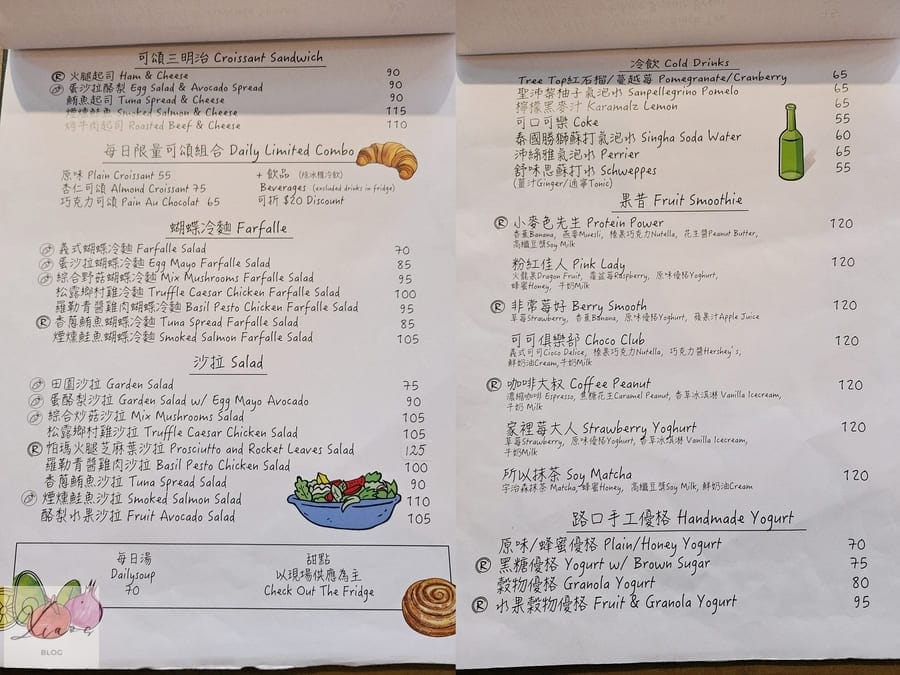 可頌三明治 Croissant Sandwich
Ⓡ 火腿起司 Ham & Cheese 90
蛋沙拉酪梨 Egg Salad & Avocado Spread 90
鮪魚起司 Tuna Spread & Cheese 90
煙燻鮭魚 Smoked Salmon & Cheese 115
烤牛肉起司 Roasted Beef & Cheese 110
每日限量可頌組合 Daily Limited Combo
原味 Plain Croissant 55
杏仁可頌 Almond Croissant 75
巧克力可頌 Pain Au Chocolat 65
+ 飲品 (除冰櫃冷飲)
Beverages (excluded drinks in fridge)
可折 $20 Discount
蝴蝶冷麵 Farfalle
義式蝴蝶冷麵 Farfalle Salad 70
蛋沙拉蝴蝶冷麵 Egg Mayo Farfalle Salad 85
綜合野菇蝴蝶冷麵 Mix Mushrooms Farfalle Salad 95
松露鄉村雞冷麵 Truffle Caesar Chicken Farfalle Salad 100
羅勒青醬雞肉蝴蝶冷麵 Basil Pesto Chicken Farfalle Salad 95
Ⓡ 香蔥鮪魚蝴蝶冷麵 Tuna Spread Farfalle Salad 85
煙燻鮭魚蝴蝶冷麵 Smoked Salmon Farfalle Salad 105
沙拉 Salad
田園沙拉 Garden Salad 75
蛋酪梨沙拉 Garden Salad w/ Egg Mayo Avocado 90
綜合炒菇沙拉 Mix Mushrooms Salad 105
松露鄉村雞沙拉 Truffle Caesar Chicken Salad 105
Ⓡ 帕瑪火腿芝麻葉沙拉 Prosciutto and Rocket Leaves Salad 125
羅勒青醬雞肉沙拉 Basil Pesto Chicken Salad 100
香蔥鮪魚沙拉 Tuna Spread Salad 90
煙燻鮭魚沙拉 Smoked Salmon Salad 110
酪梨水果沙拉 Fruit Avocado Salad 105
每日湯
Dailysoup
70
甜點
以現場供應為主
Check Out The Fridge
BLOG
冷飲 Cold Drinks
Tree Top紅石榴/蔓越莓 Pomegranate/Cranberry 65
聖沛黎柚子氣泡水 Sanpellegrino Pomelo 65
檸檬黑麥汁 Karamalz Lemon 65
可口可樂 Coke 55
泰國勝獅蘇打氣泡水 Singha Soda Water 60
沛綠雅氣泡水 Perrier 65
舒味思蘇打水 Schweppes 55
(薑汁Ginger/通寧Tonic)
果昔 Fruit Smoothie
Ⓡ 小麥色先生 Protein Power 120
香蕉Banana, 燕麥Muesli, 榛果巧克力Nutella, 花生醬Peanut Butter,
高纖豆漿Soy Milk
粉紅佳人 Pink Lady 120
火龍果Dragon Fruit, 覆盆莓Raspberry, 原味優格Yoghurt,
蜂蜜Honey, 牛奶Milk
Ⓡ 非常莓好 Berry Smooth 120
草莓Strawberry, 香蕉Banana, 原味優格Yoghurt, 蘋果汁Apple Juice
可可俱樂部 Choco Club 120
義式可可Cioco Delice, 榛果巧克力Nutella, 巧克力醬Hershey's,
鮮奶油Cream, 牛奶Milk
Ⓡ 咖啡大叔 Coffee Peanut 120
濃縮咖啡 Espresso, 焦糖花生Caramel Peanut, 香草冰淇淋 Vanilla Icecream,
牛奶 Milk
家裡莓大人 Strawberry Yoghurt 120
草莓Strawberry, 原味優格Yoghurt, 香草冰淇淋 Vanilla Icecream,
牛奶Milk
所以抹茶 Soy Matcha 120
宇治森抹茶 Matcha, 蜂蜜Honey, 高纖豆漿Soy Milk, 鮮奶油Cream
路口手工優格 Handmade Yogurt
原味/蜂蜜優格 Plain/Honey Yogurt 70
Ⓡ 黑糖優格 Yogurt w/ Brown Sugar 75
穀物優格 Granola Yogurt 80
Ⓡ 水果穀物優格 Fruit & Granola Yogurt 95